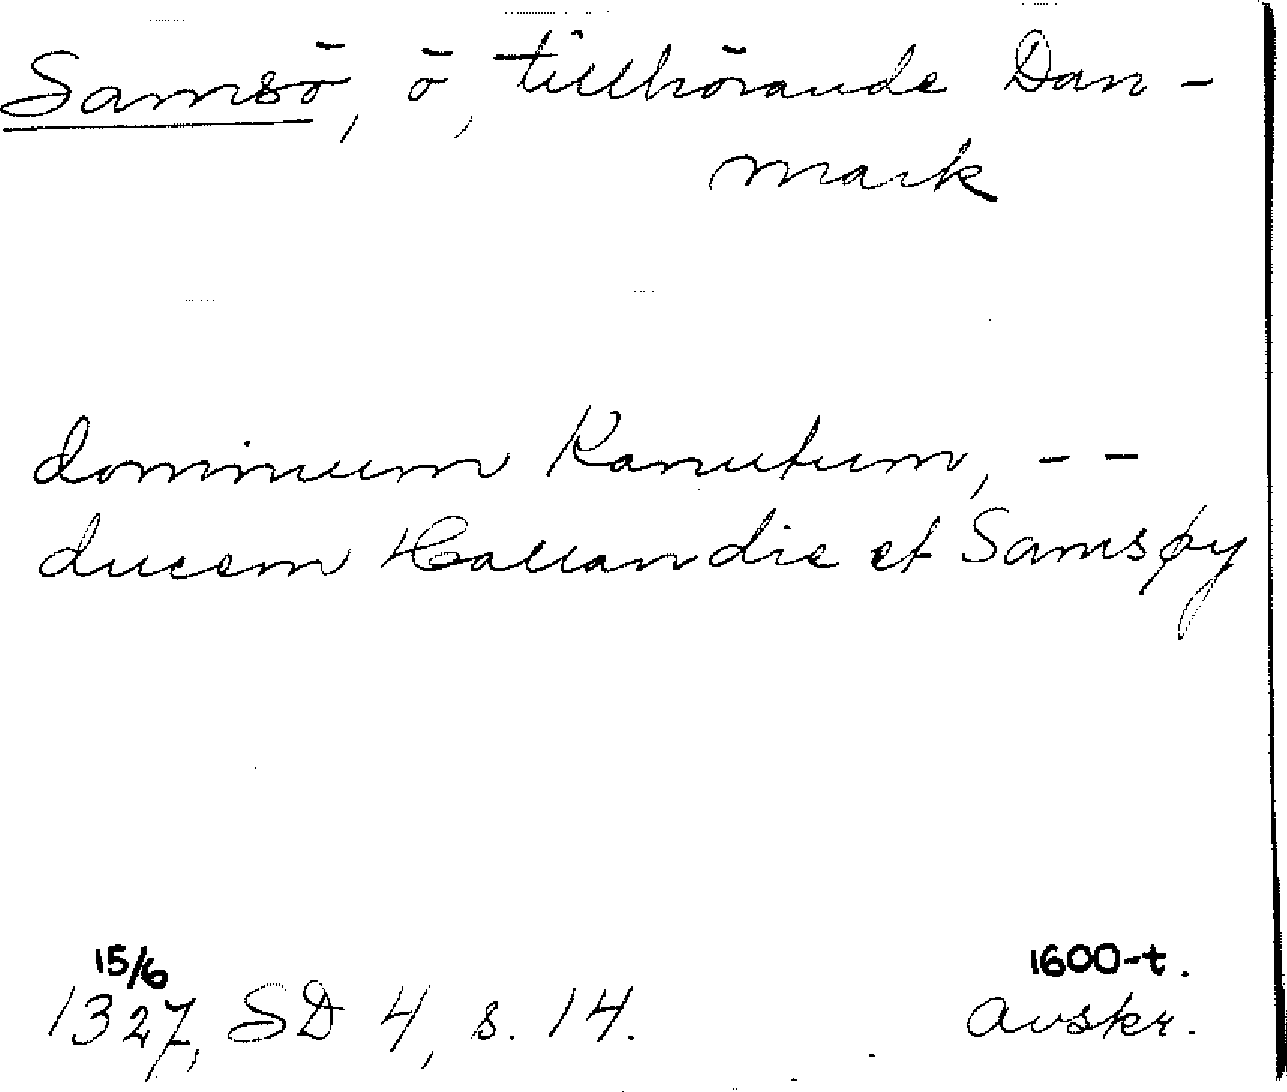 Samsö, ö, tillhörande Dan-
mark
dominum Kanutum, --
ducem Hallandie et Samsøy
15/6
1600-t.
1327, SD 4, s. 14.
avskr.